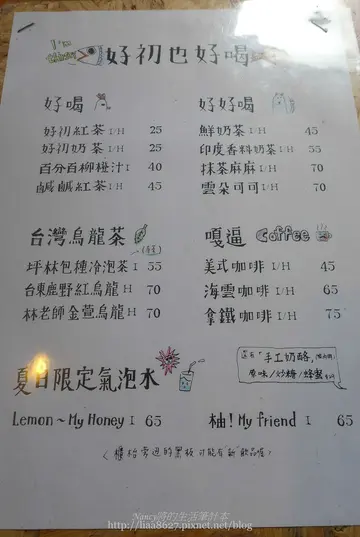 I'm thirsty
好初也好喝
好喝
好初紅茶 I/H 25
好初奶茶 I/H 25
百分百柳橙汁 I 40
鹹鹹紅茶 I/H 45
好好喝
鮮奶茶 I/H 45
印度香料奶茶 I/H 55
抹茶麻麻 I/H 70
雲朵可可 I/H 70
台灣烏龍茶
坪林包種冷泡茶 I 55
台東鹿野紅烏龍 H 70
林老師金萱烏龍 H 70
嘎逼 Coffee
美式咖啡 I/H 45
海雲咖啡 I/H 65
拿鐵咖啡 I/H 75
還有「手工奶酪」
原味/炒糖/蜂蜜
夏日限定氣泡水
Lemon~My Honey I 65
柚! My friend I 65
<櫃枱旁邊的黑板才能有"新"飲品喔>
Nancy將的生活筆計本
http://liaa8627.pixnet.net/blog